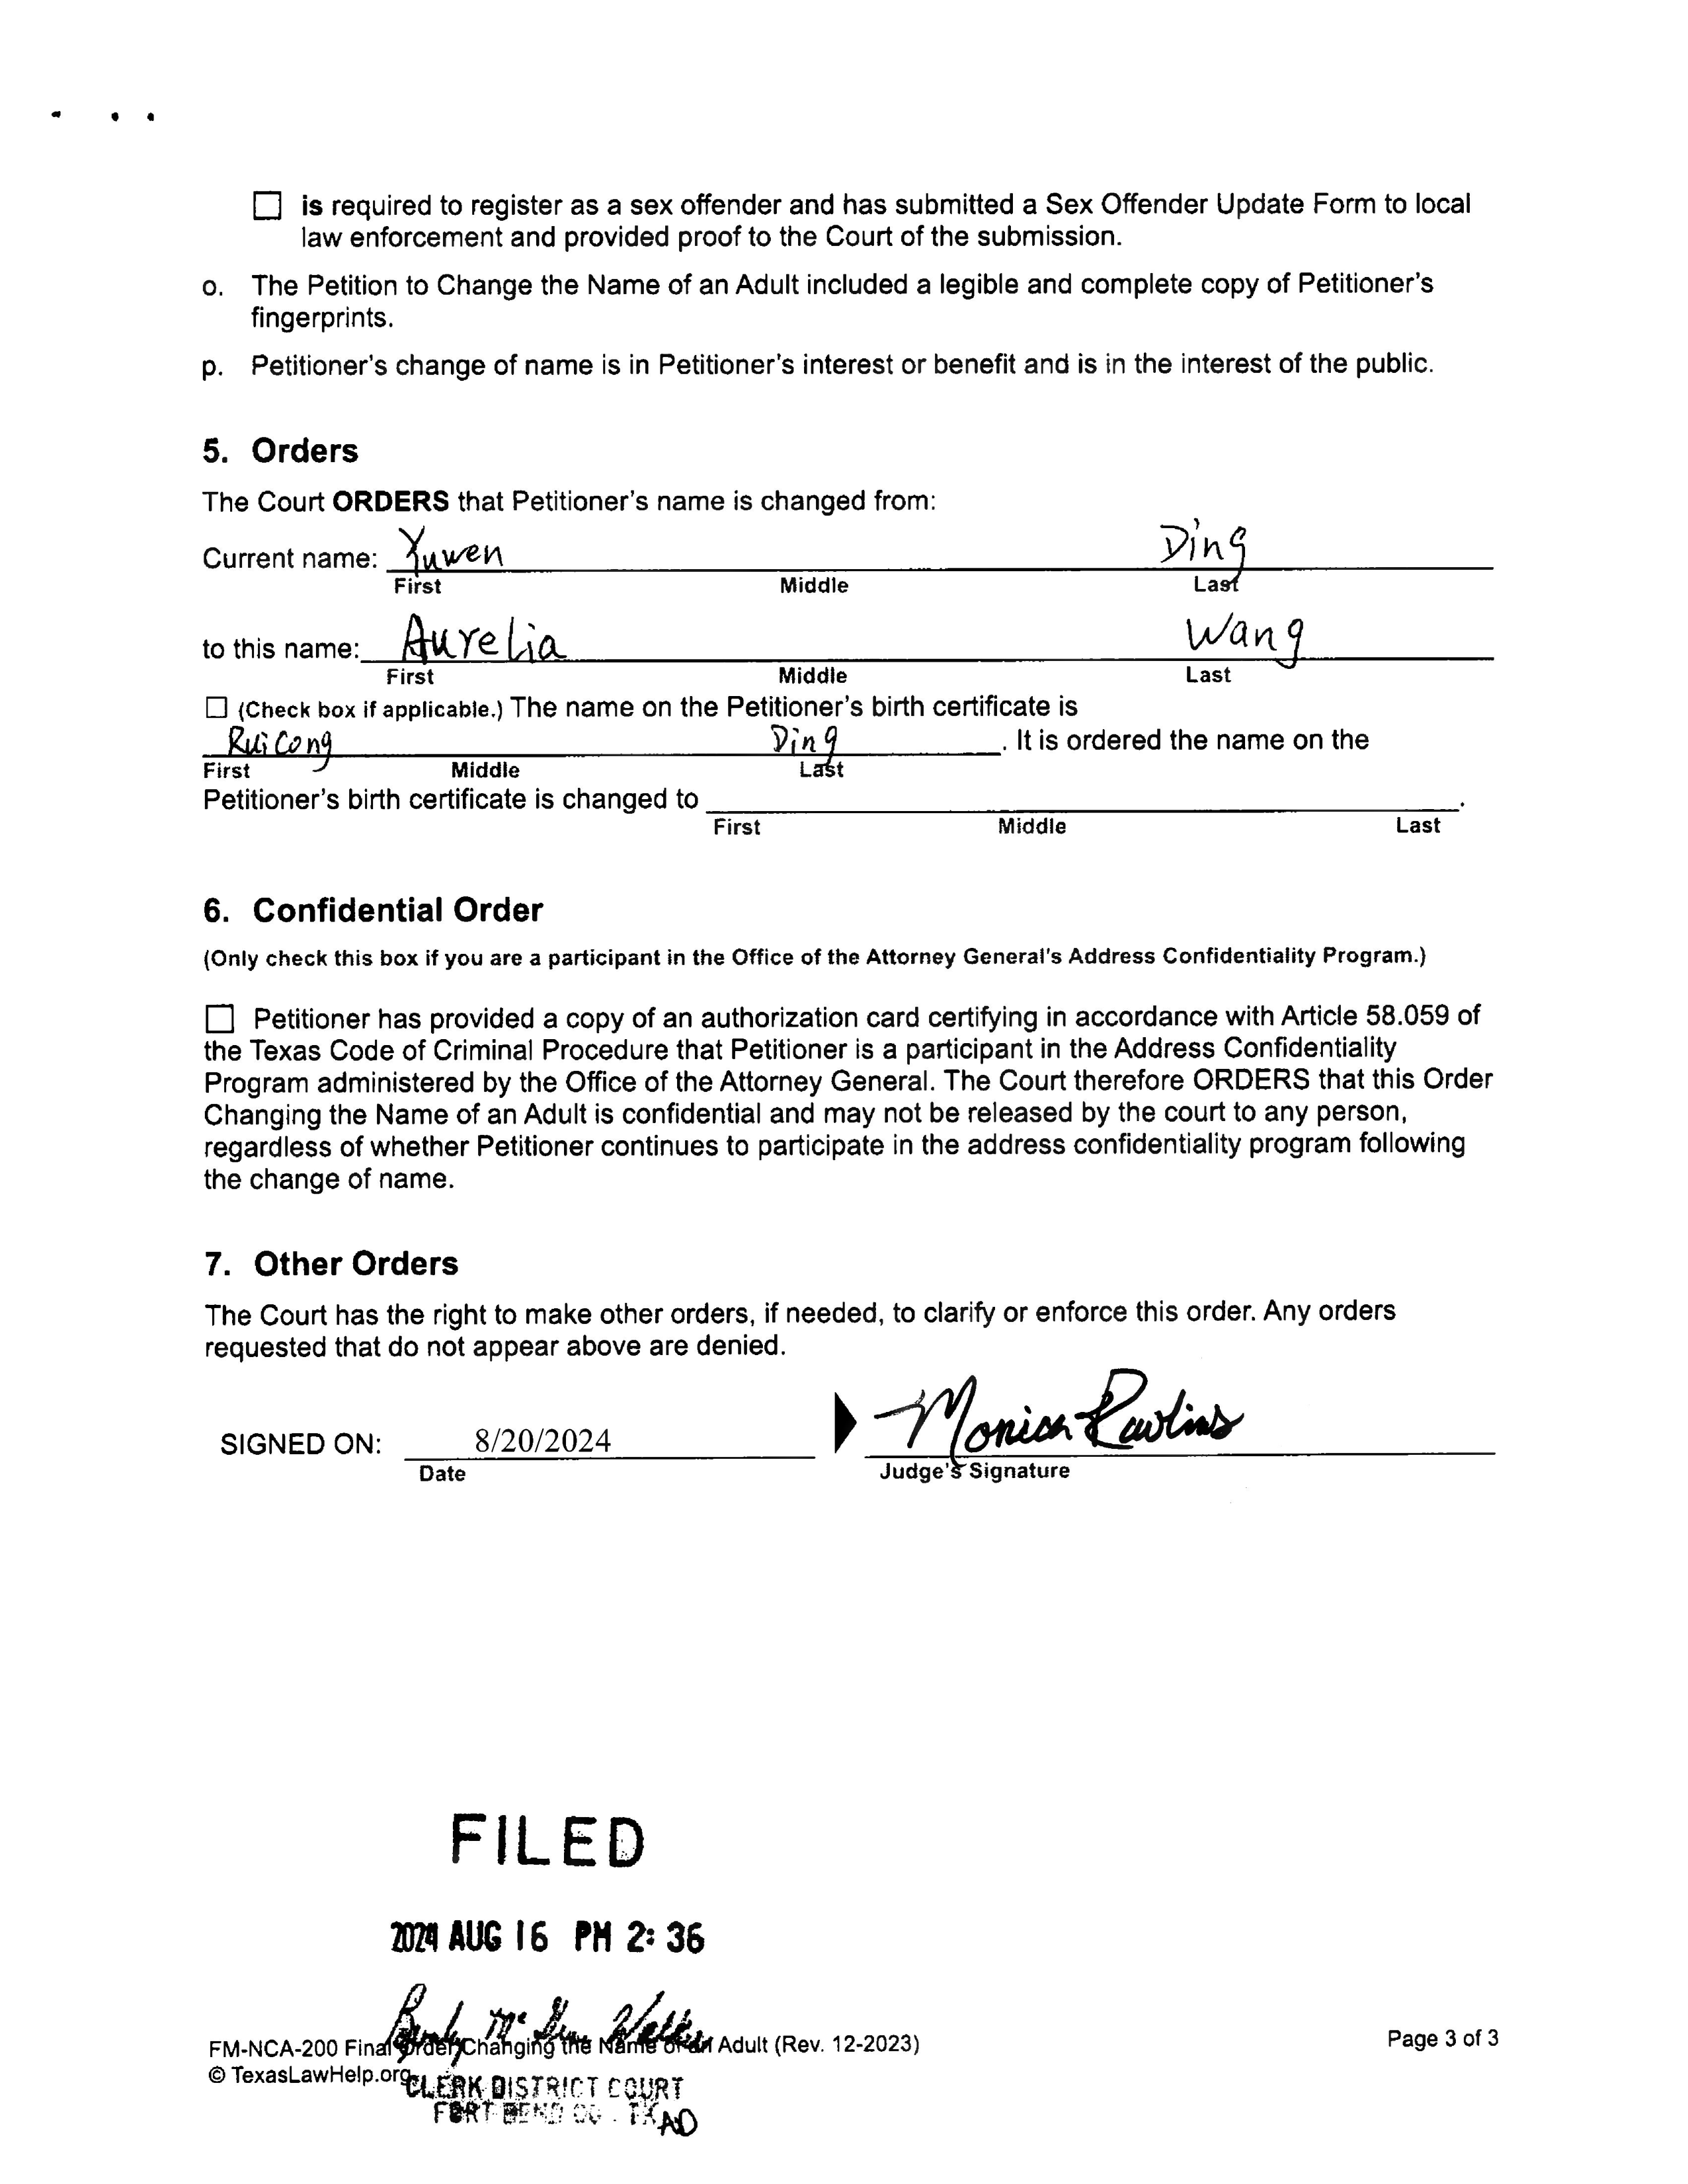 ☐ is required to register as a sex offender and has submitted a Sex Offender Update Form to local
law enforcement and provided proof to the Court of the submission.
o. The Petition to Change the Name of an Adult included a legible and complete copy of Petitioner's
fingerprints.
p. Petitioner's change of name is in Petitioner's interest or benefit and is in the interest of the public.
5. Orders
The Court ORDERS that Petitioner's name is changed from:
Current name: Yuwen Ding
First Middle Last
to this name: Aurelia Wang
First Middle Last
☐ (Check box if applicable.) The name on the Petitioner's birth certificate is
RuiCong Ding . It is ordered the name on the
First Middle Last
Petitioner's birth certificate is changed to .
First Middle Last
6. Confidential Order
(Only check this box if you are a participant in the Office of the Attorney General's Address Confidentiality Program.)
☐ Petitioner has provided a copy of an authorization card certifying in accordance with Article 58.059 of
the Texas Code of Criminal Procedure that Petitioner is a participant in the Address Confidentiality
Program administered by the Office of the Attorney General. The Court therefore ORDERS that this Order
Changing the Name of an Adult is confidential and may not be released by the court to any person,
regardless of whether Petitioner continues to participate in the address confidentiality program following
the change of name.
7. Other Orders
The Court has the right to make other orders, if needed, to clarify or enforce this order. Any orders
requested that do not appear above are denied.
SIGNED ON: 8/20/2024 Monica Rawlins
Date Judge's Signature
FILED
2024 AUG 16 PM 2:36
FM-NCA-200 Final Order Changing the Name of an Adult (Rev. 12-2023) Page 3 of 3
© TexasLawHelp.org
CLERK DISTRICT COURT
FORT BEND CO. TX AD